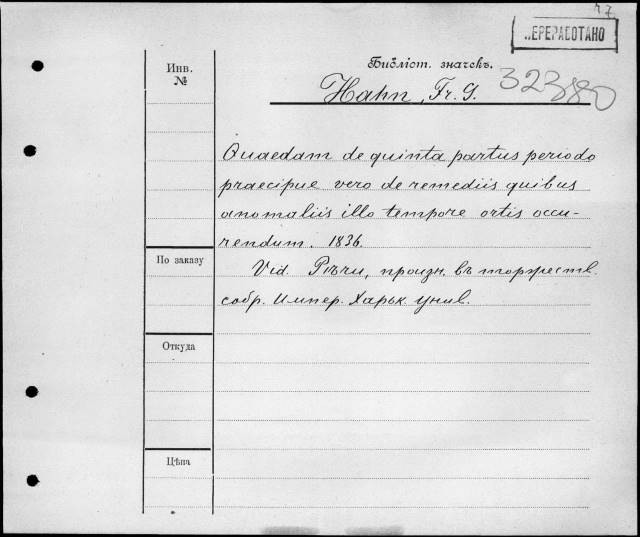 27
ПЕРЕРАБОТАНО
Инв.
№
Библіот. значекъ.
323880
Hahn, Fr. G.
Quaedam de quinta partus periodo
praecipue vero de remediis quibus
anomaliis illo tempore ortis occu-
rendum. 1836.
По заказу
Vid. Рѣчи, произн. въ торжеств.
собр. Импер. Харьк. Унив.
Откуда
Цѣна